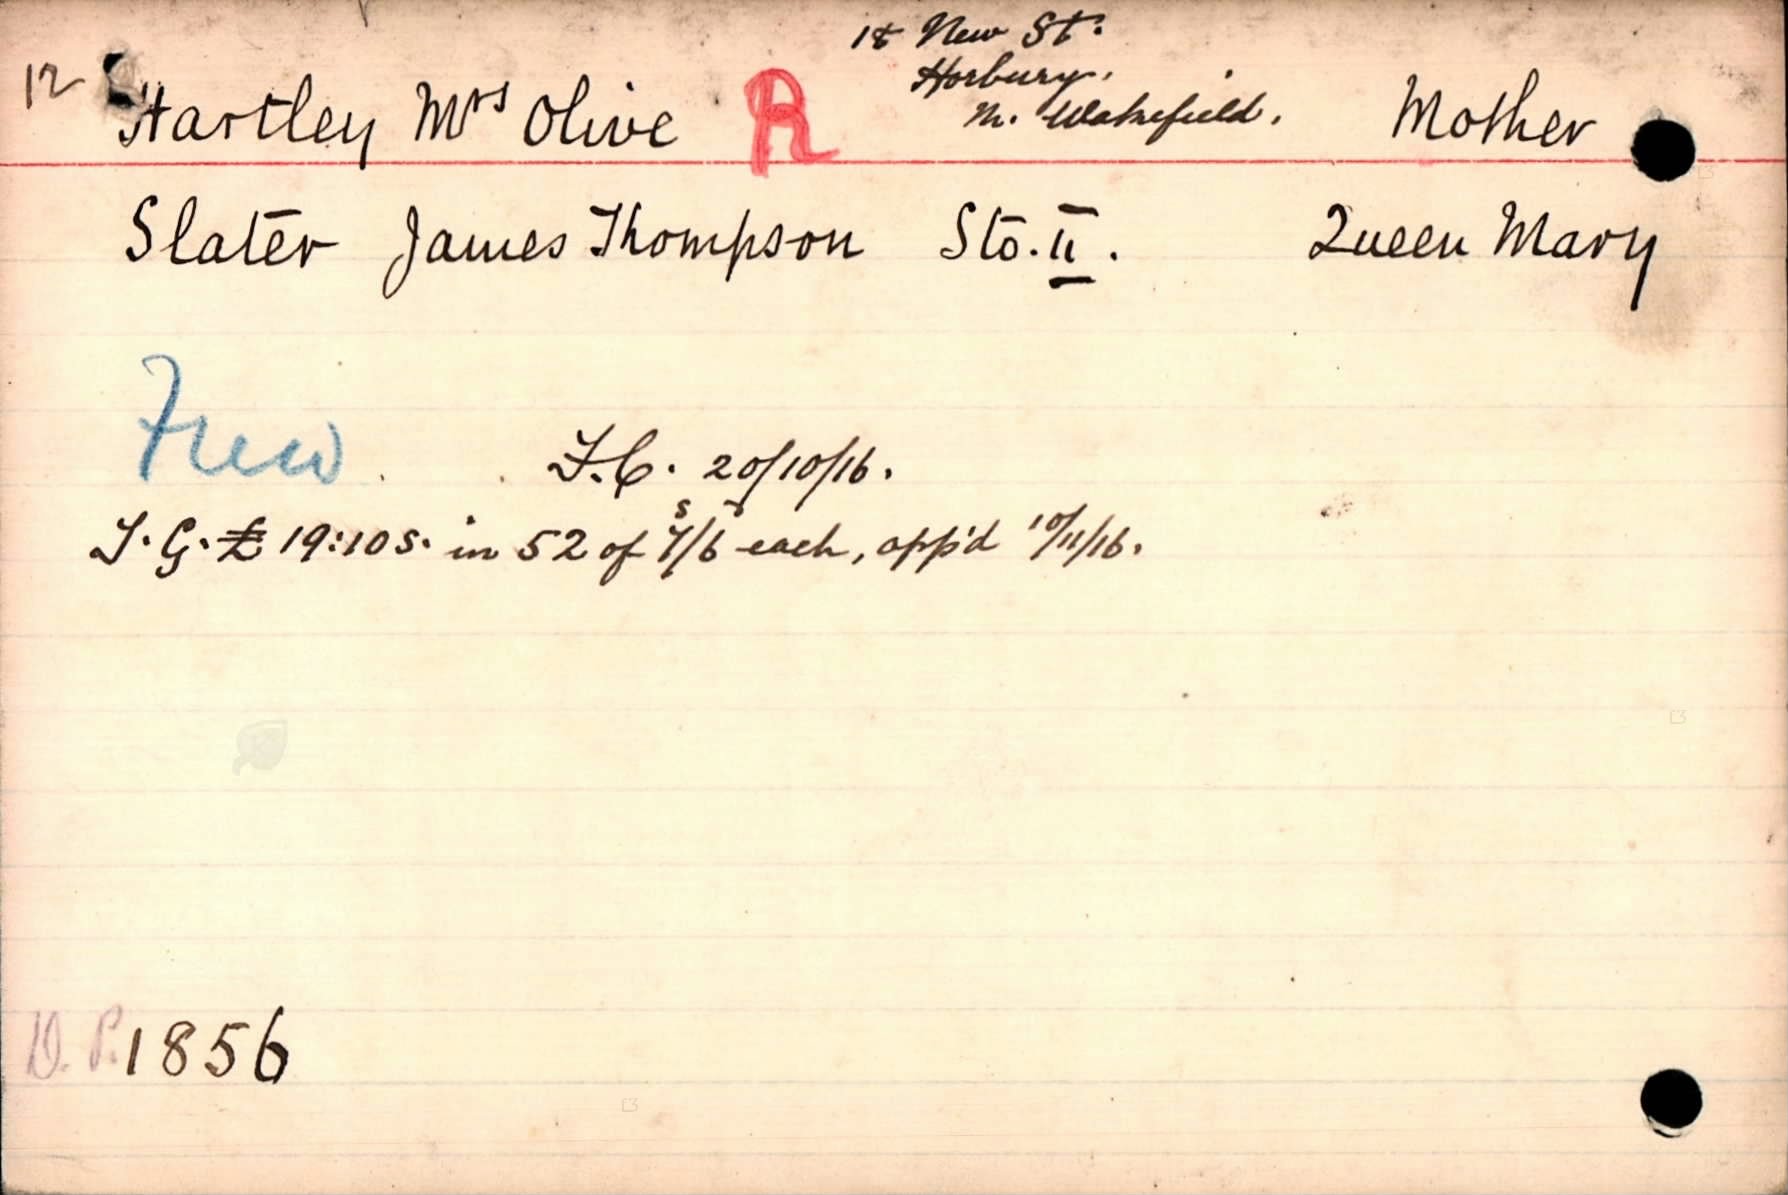 18 New St.
Horbury.
12 Hartley Mrs Olive R Nr. Wakefield. Mother
Slater James Thompson Sto. II. Queen Mary
F.C. 20/10/16.
I.G. £ 19:10s. in 52 of 7s/6d each, app'd 10/11/16.
D.P. 1856